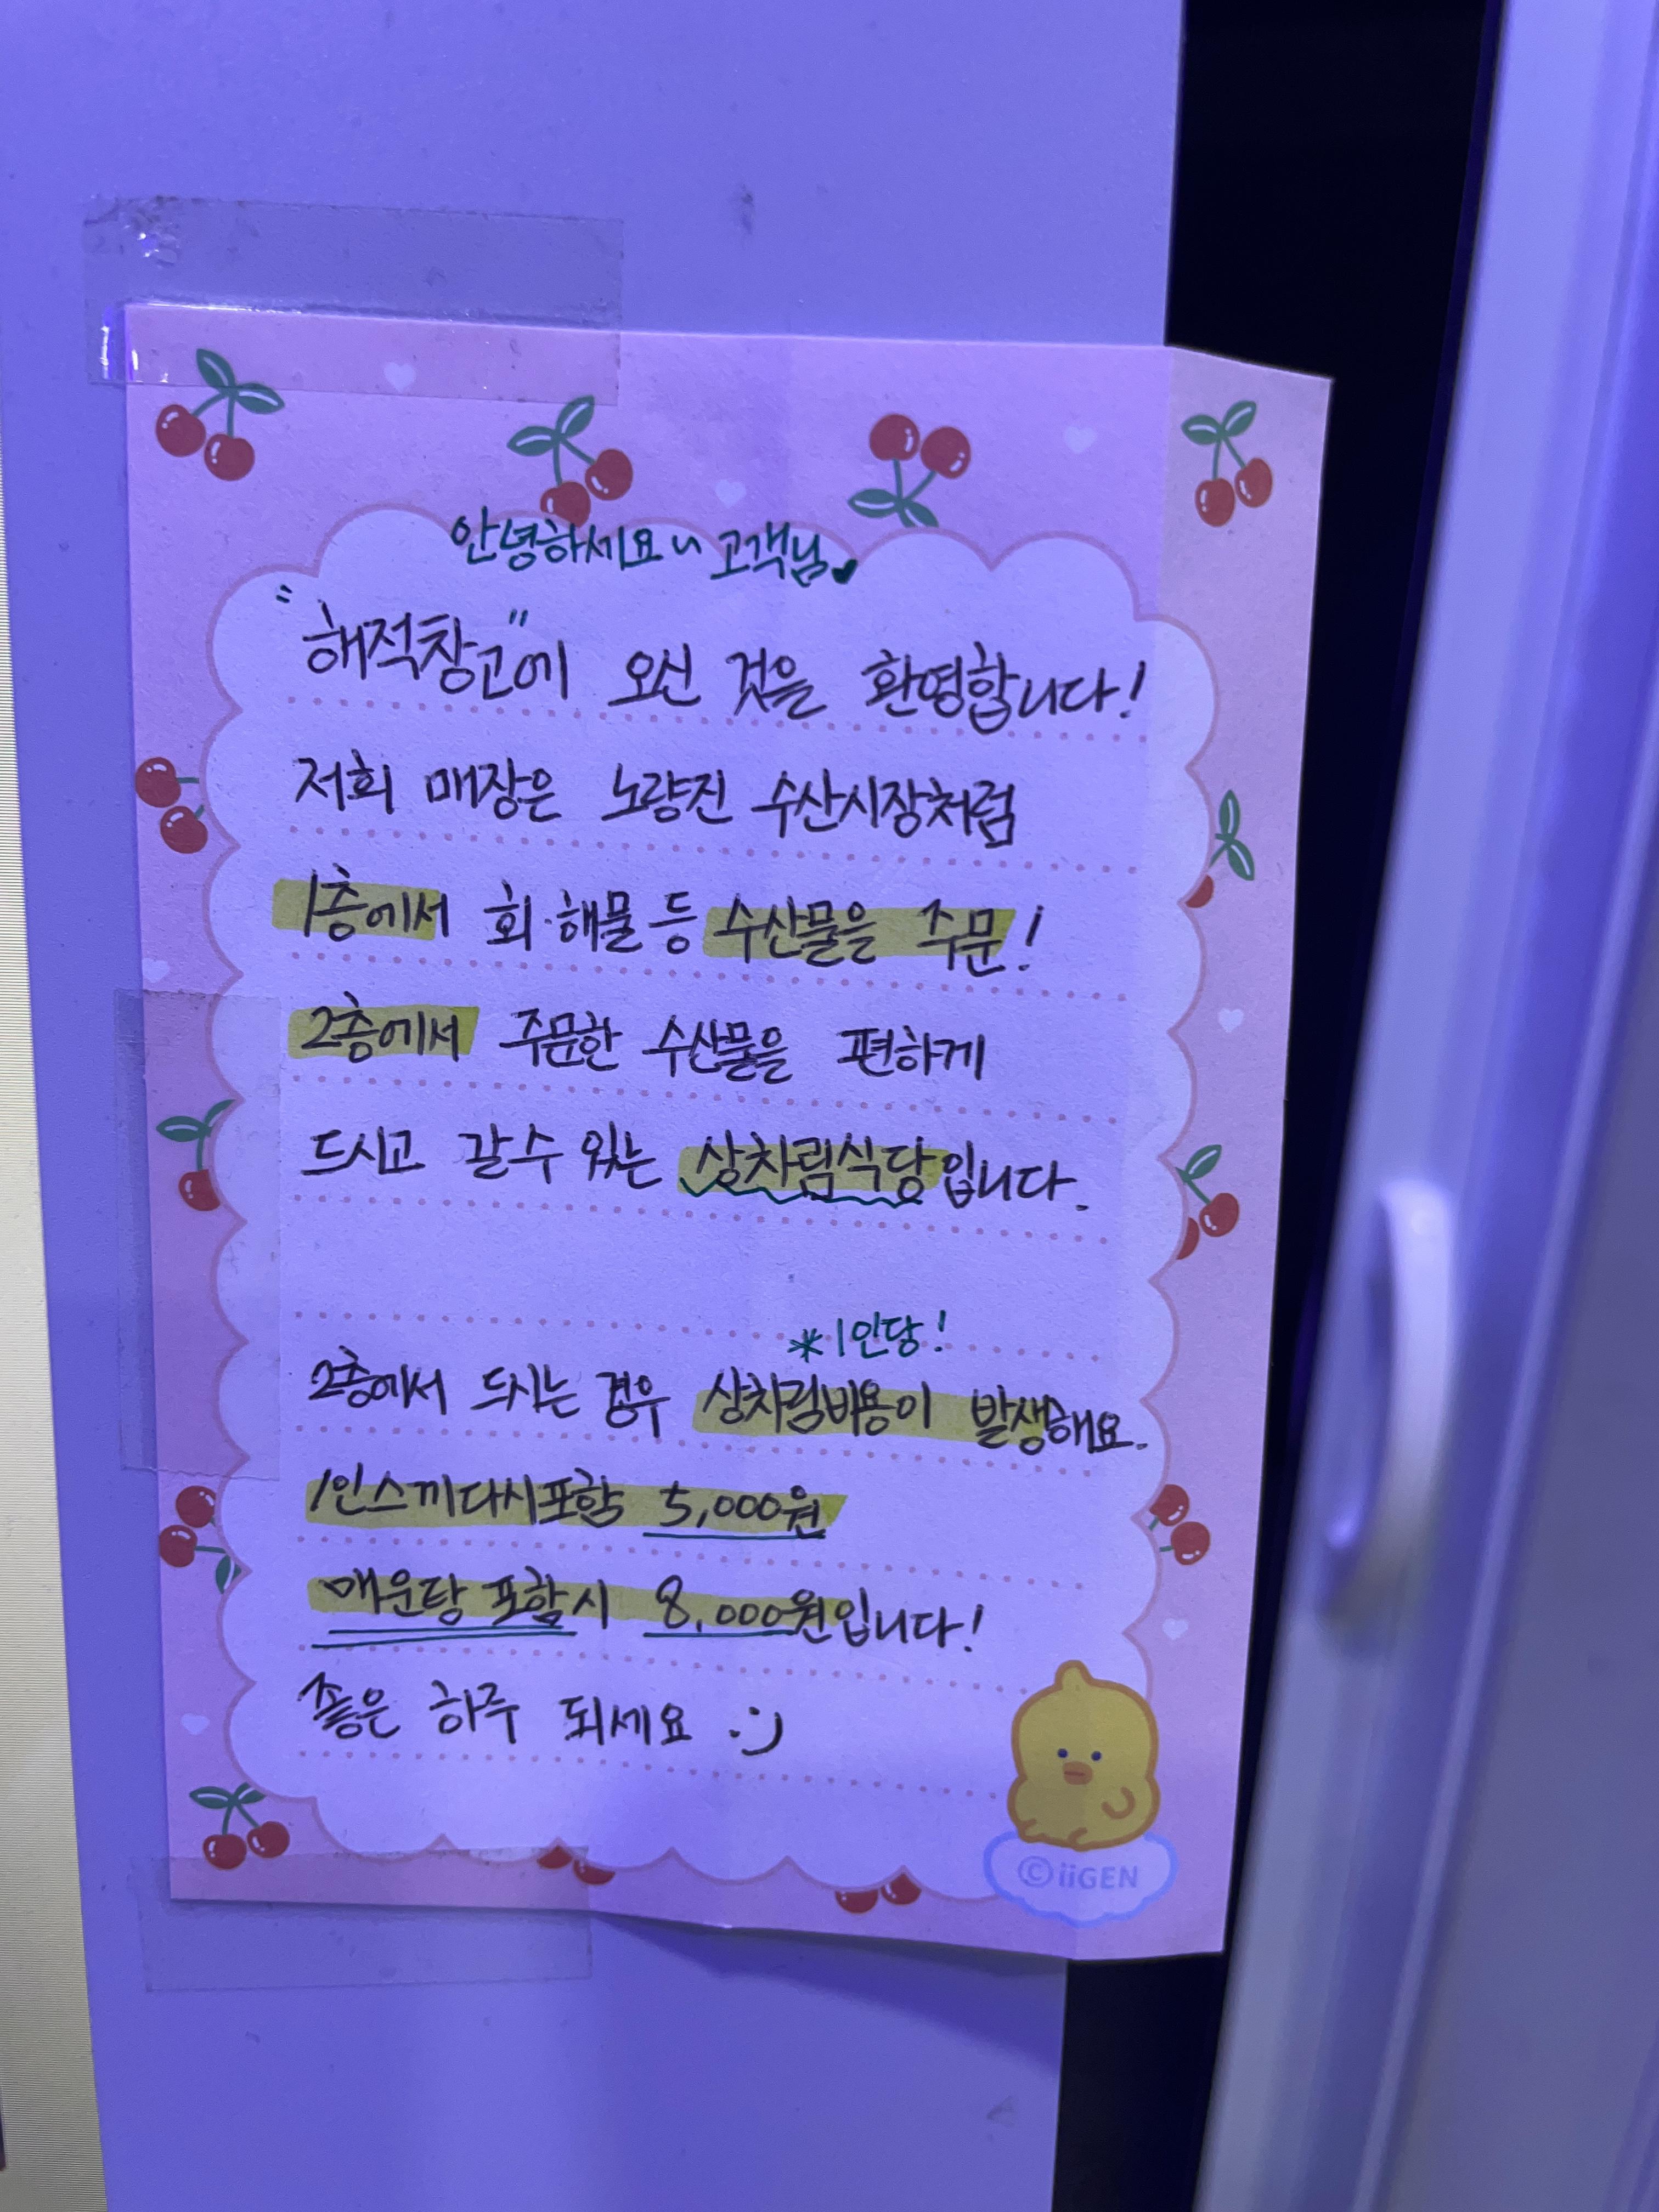 안녕하세요~ 고객님♥
"해적창고"에 오신 것을 환영합니다!
저희 매장은 노량진 수산시장처럼
1층에서 회·해물 등 수산물을 주문!
2층에서 주문한 수산물을 편하게
드시고 갈 수 있는 상차림식당입니다.
*1인당!
2층에서 드시는 경우 상차림비용이 발생해요.
1인스끼다시포함 5,000원
매운탕 포함시 8,000원입니다!
좋은 하루 되세요 :)
©iiGEN